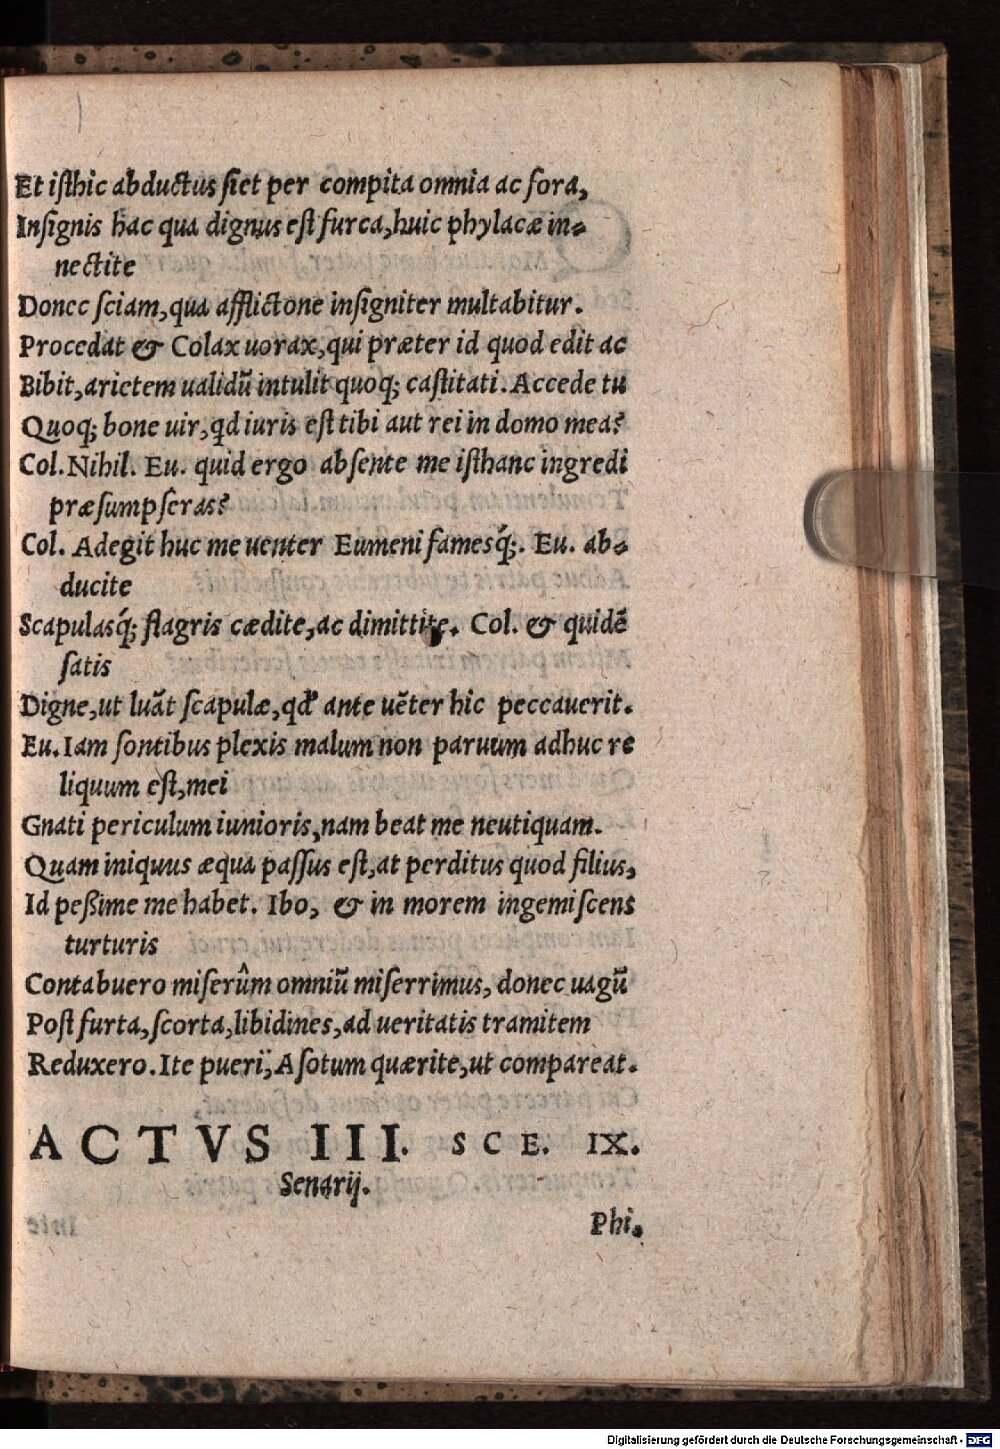 Et iſthic abductus ſiet per compita omnia ac fora,
Inſignis hac qua dignus eſt furca, huic phylacæ in-
nectite
Donec ſciam, qua afflictone inſigniter multabitur.
Procedat & Colax uorax, qui præter id quod edit ac
Bibit, arietem ualidū intulit quoq; caſtitati. Accede tu
Quoq; bone uir, qd iuris eſt tibi aut rei in domo mea?
Col. Nihil. Eu. quid ergo abſente me iſthanc ingredi
præſumpſeras?
Col. Adegit huc me uenter Eumeni famesq́;. Eu. ab-
ducite
Scapulasq́; flagris cædite, ac dimittite. Col. & quidē
ſatis
Digne, ut luāt ſcapulæ, qd' ante uēter hic peccauerit.
Eu. Iam ſontibus plexis malum non paruum adhuc re
liquum eſt, mei
Gnati periculum iunioris, nam beat me neutiquam.
Quam iniquus æqua paſſus eſt, at perditus quod filius,
Id peßime me habet. Ibo, & in morem ingemiſcens
turturis
Contabuero miſerûm omniū miſerrimus, donec uagū
Poſt furta, ſcorta, libidines, ad ueritatis tramitem
Reduxero. Ite pueri, Aſotum quærite, ut compareat.
ACTVS III. SCE. IX.
Senarij.
Phi.
Digitalisierung gefördert durch die Deutsche Forschungsgemeinschaft - DFG